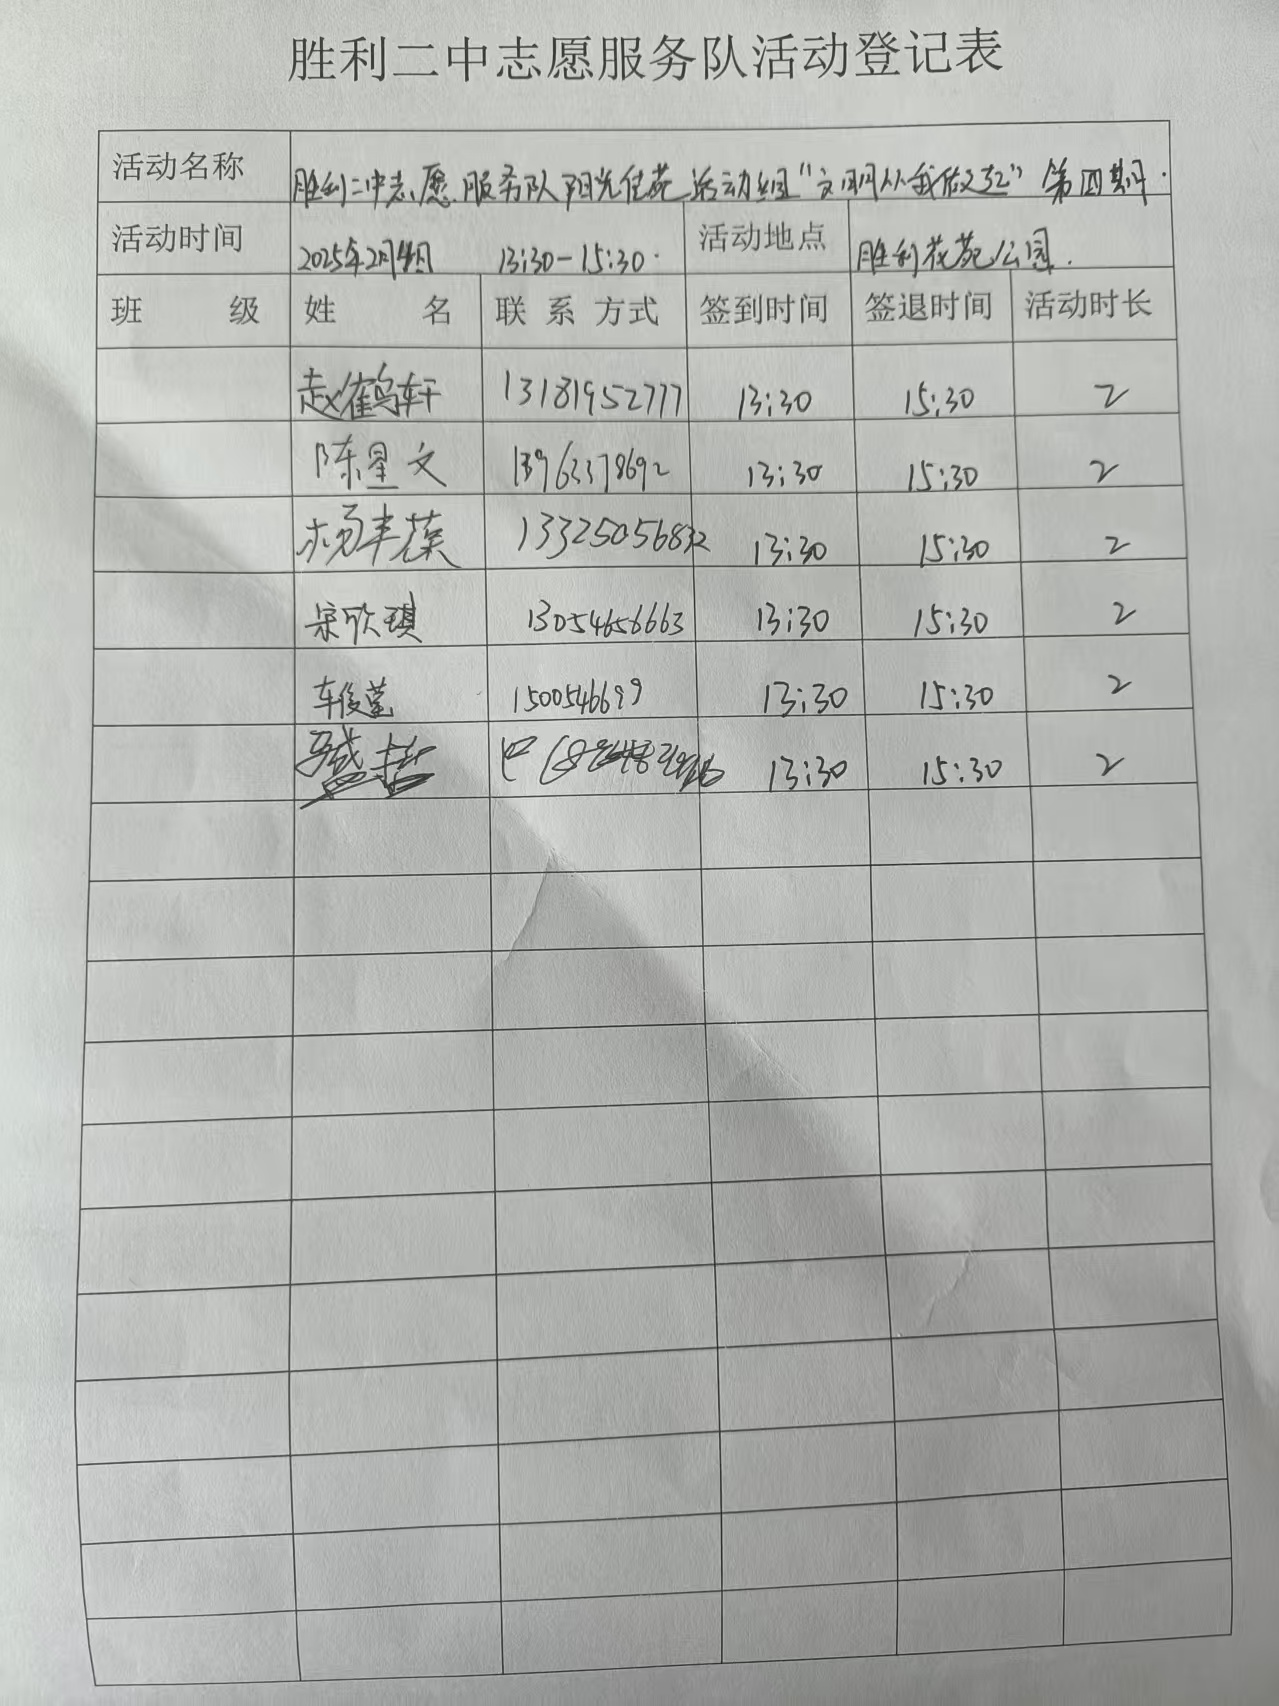 胜利二中志愿服务队活动登记表
活动名称 胜利二中志愿服务队阳光佳苑活动组“文明从我做起”第四期.
活动时间 2025年2月4日 13:30-15:30. 活动地点 胜利花苑公园.
班 级 姓 名 联 系 方式 签到时间 签退时间 活动时长
赵鹤轩 13181952777 13:30 15:30 2
陈星文 13963378692 13:30 15:30 2
杨丰蕖 13325056832 13:30 15:30 2
宋欣琪 13054656663 13:30 15:30 2
车俊莹 1500546699 13:30 15:30 2
13:30 15:30 2